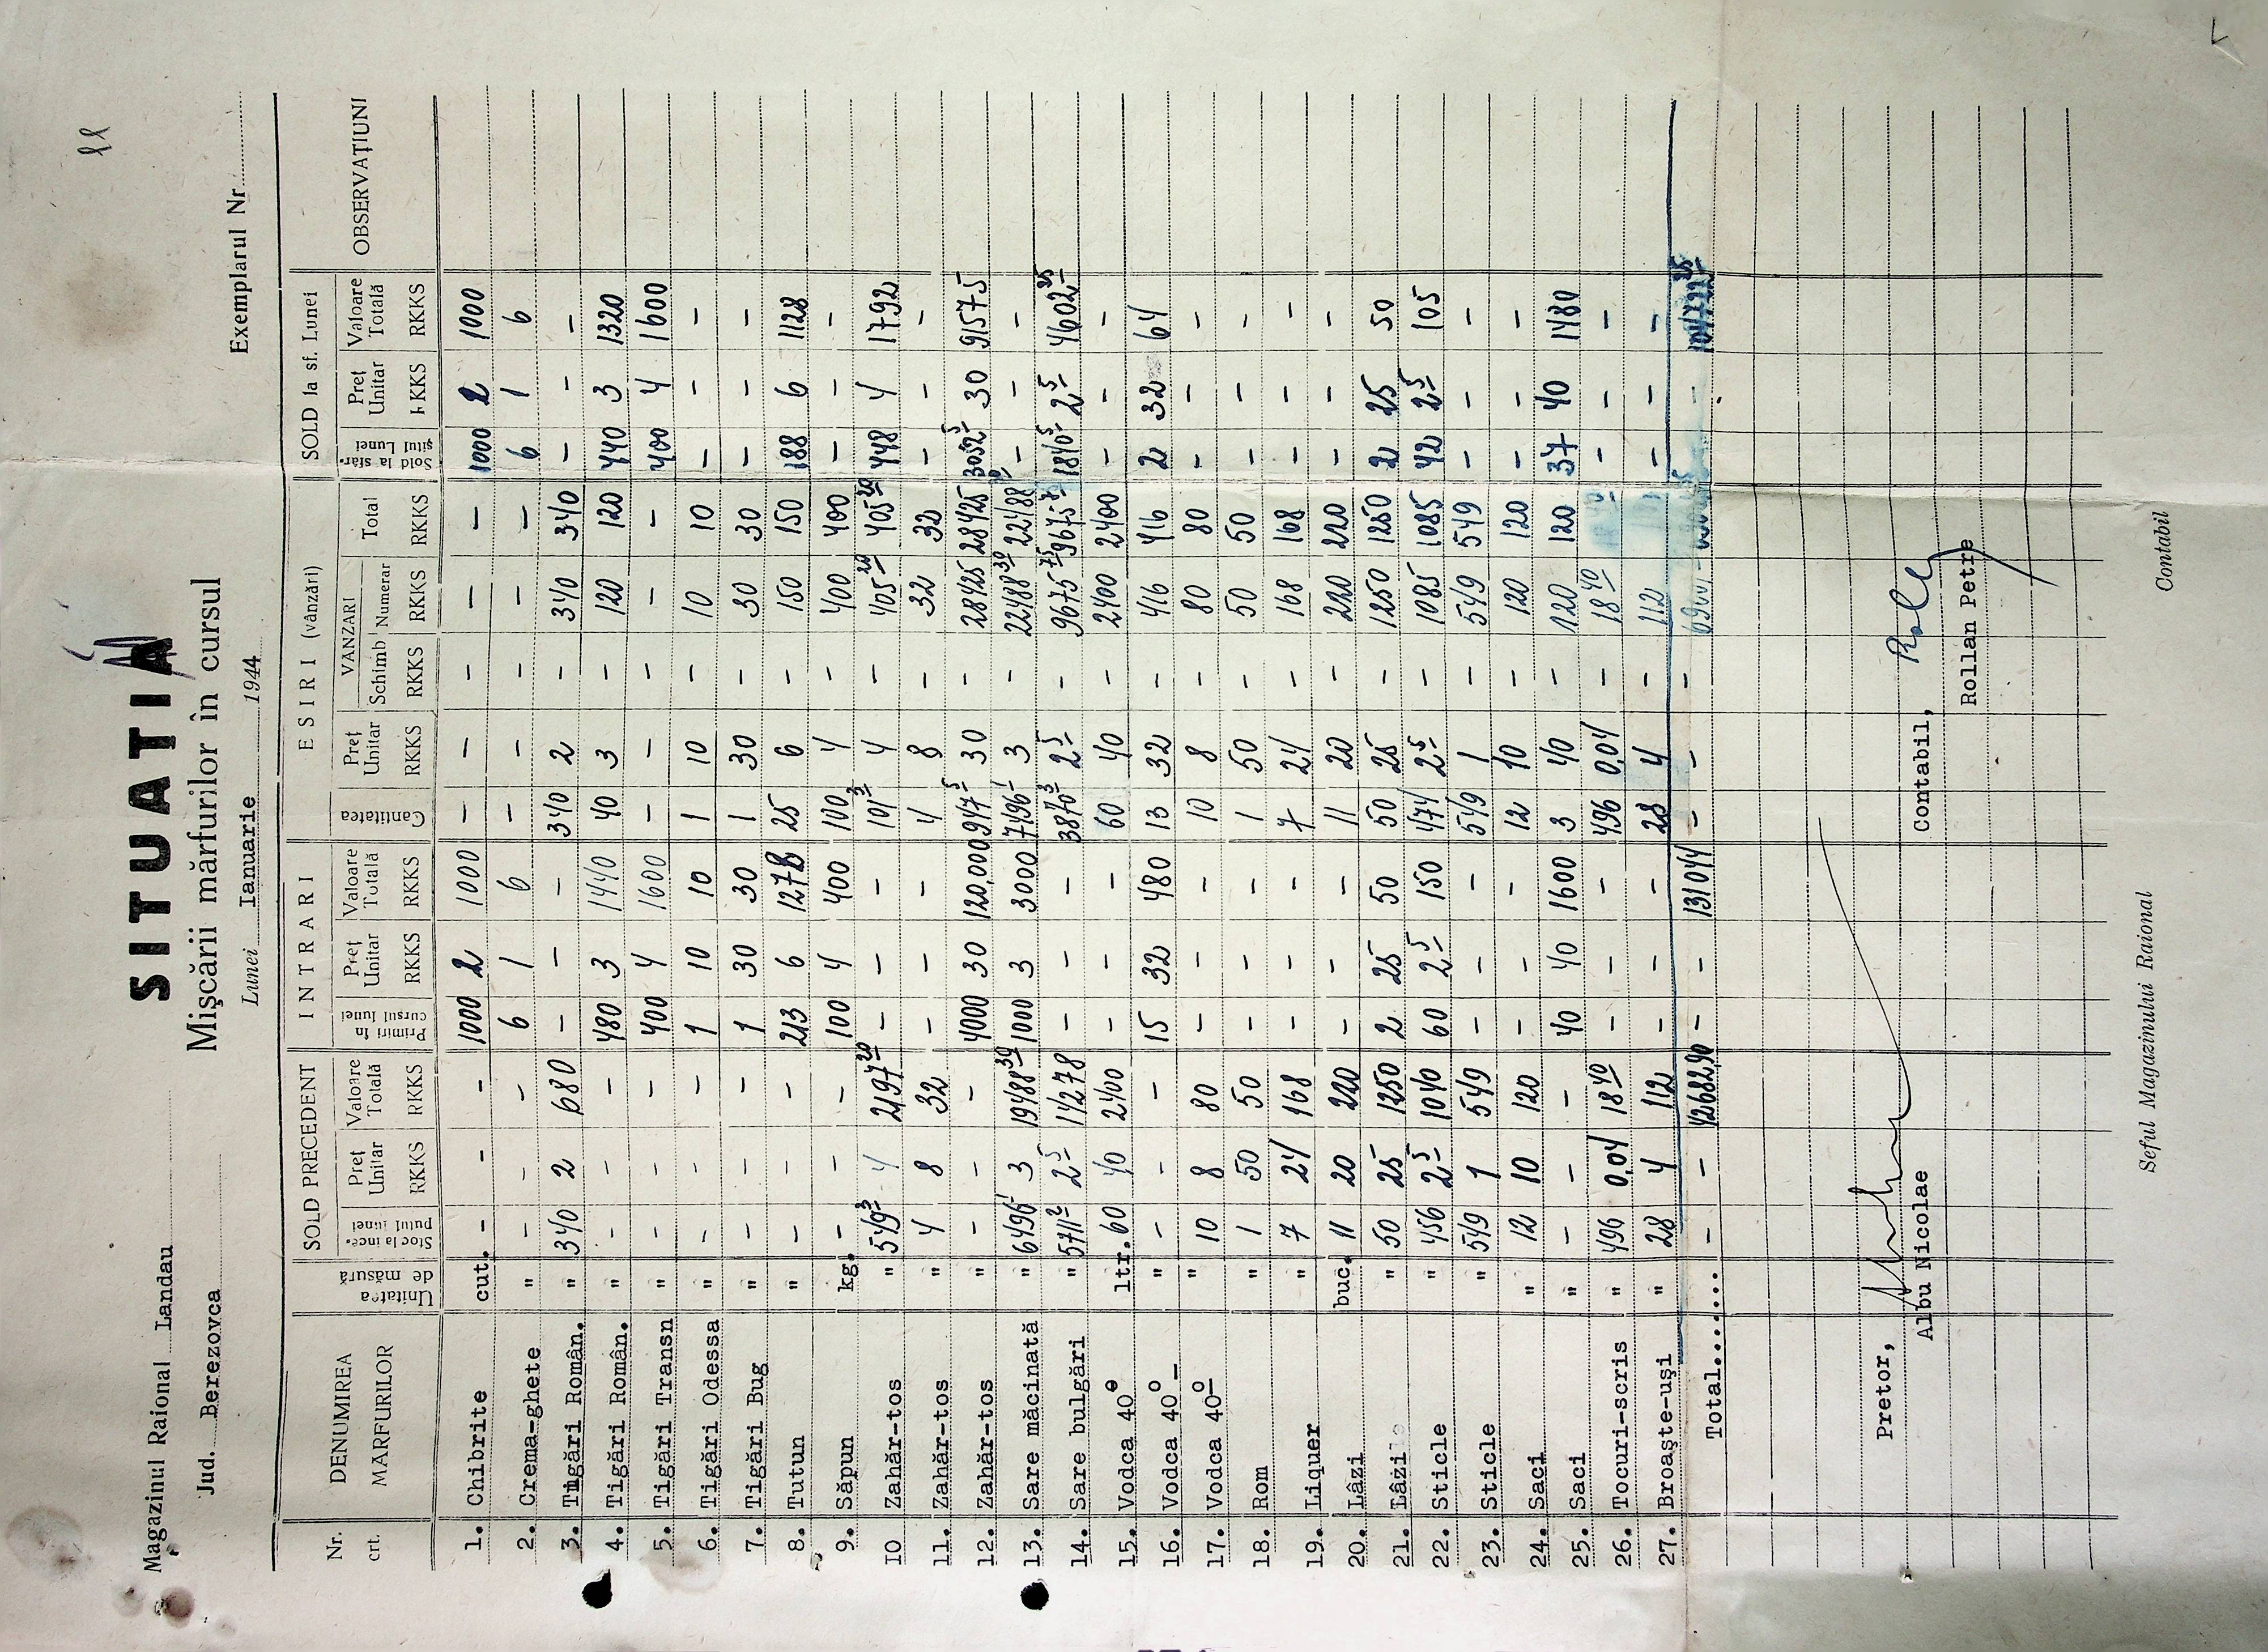 ll
Magazinul Raional Landau
Jud. Berezovca
SITUATIA
Mişcării mărfurilor în cursul
Lunei Ianuarie 1944
Exemplarul Nr.
Nr. crt. | DENUMIREA MARFURILOR | Unitatea de măsură | SOLD PRECEDENT | INTRARI | ESIRI (vânzări) | SOLD la sf. Lunei | OBSERVAŢIUNI
Stoc la începutul lunei | Preţ Unitar RKKS | Valoare Totală RKKS | Primiri în cursul lunei | Preţ Unitar RKKS | Valoare Totală RKKS | Cantitatea | Preţ Unitar RKKS | VANZARI Schimb RKKS | Numerar RKKS | Total RKKS | Sold la sfârşitul Lunei | Preţ Unitar RKKS | Valoare Totală RKKS
1. Chibrite cut. - - - 1000 2 1000 - - - - - 1000 2 1000
2. Crema-ghete " - - - 6 1 6 - - - - - 6 1 6
3. Tigări Român. " 340 2 680 - - - 340 2 - 340 340 - - -
4. Tigări Român. " - - - 480 3 1440 40 3 - 120 120 440 3 1320
5. Tigări Transn " - - - 400 4 1600 - - - - - 400 4 1600
6. Tigări Odessa " - - - 1 10 10 1 10 - 10 10 - - -
7. Tigări Bug " - - - 1 30 30 1 30 - 30 30 - - -
8. Tutun " - - - 213 6 1278 25 6 - 150 150 188 6 1128
9. Săpun kg. - - - 100 4 400 100 4 - 400 400 - - -
10 Zahăr-tos " 549³ 4 2197 20 - - - 101³ 4 - 405 20 405 20 448 4 1792
11. Zahăr-tos " 4 8 32 - - - 4 8 - 32 32 - - -
12. Zahăr-tos " - - - 4000 30 120,000 947⁵ 30 - 28425 28425 3052⁵ 30 91575
13. Sare măcinată " 6496¹ 3 19488 30 1000 3 3000 7496¹ 3 - 22488 30 22488 - - -
14. Sare bulgări " 5711² 2⁵ 14278 - - - 3870³ 2⁵ - 9675 75 9675 1840⁹ 2⁵ 4602 25
15. Vodca 40° ltr. 60 40 2400 - - - 60 40 - 2400 2400 - - -
16. Vodca 40° " - - - 15 32 480 13 32 - 416 416 2 32 64
17. Vodca 40° " 10 8 80 - - - 10 8 - 80 80 - - -
18. Rom " 1 50 50 - - - 1 50 - 50 50 - - -
19. Liquer " 7 24 168 - - - 7 24 - 168 168 - - -
20. Lăzi buc. 11 20 220 - - - 11 20 - 220 220 - - -
21. Lăzi " 50 25 1250 2 25 50 50 25 - 1250 1250 2 25 50
22. Sticle " 456 2⁵ 1040 60 2⁵ 150 474 2⁵ - 1085 1085 42 2⁵ 105
23. Sticle " 549 1 549 - - - 549 1 - 549 549 - - -
24. Saci " 12 10 120 - - - 12 10 - 120 120 - - -
25. Saci " - - - 40 40 1600 3 40 - 120 120 37 40 1480
26. Tocuri-scris " 496 0,04 18 40 - - - 496 0,04 - 18 40 - - -
27. Broaşte-uşi " 28 4 112 - - - 28 4 - 112 - - -
Total....... - - 42682,90 - - 131044 - - - -
Pretor,
Albu Nicolae
Contabil,
Rollan Petre
Seful Magazinului Raional
Contabil